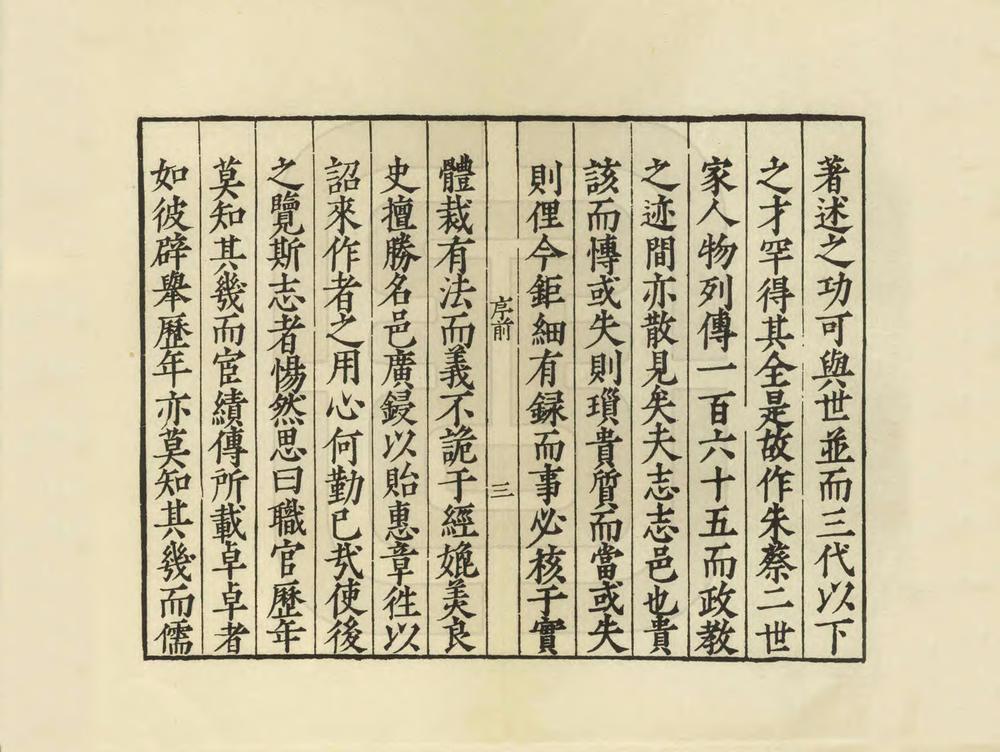 著述之功可與世並而三代以下
之才罕得其全是故作朱蔡二世
家人物列傳一百六十五而政教
之迹間亦散見矣夫志志邑也貴
該而慱或失則瑣貴質而當或失
則俚今鉅細有録而事必核于實
序前
三
體裁有法而義不詭于經娩美良
史擅勝名邑廣鋟以貽惠章徃以
詔來作者之用心何勤已㢤使後
之覽斯志者惕然思曰職官歷年
莫知其幾而宦績傳所載卓卓者
如彼辟舉歷年亦莫知其幾而儒